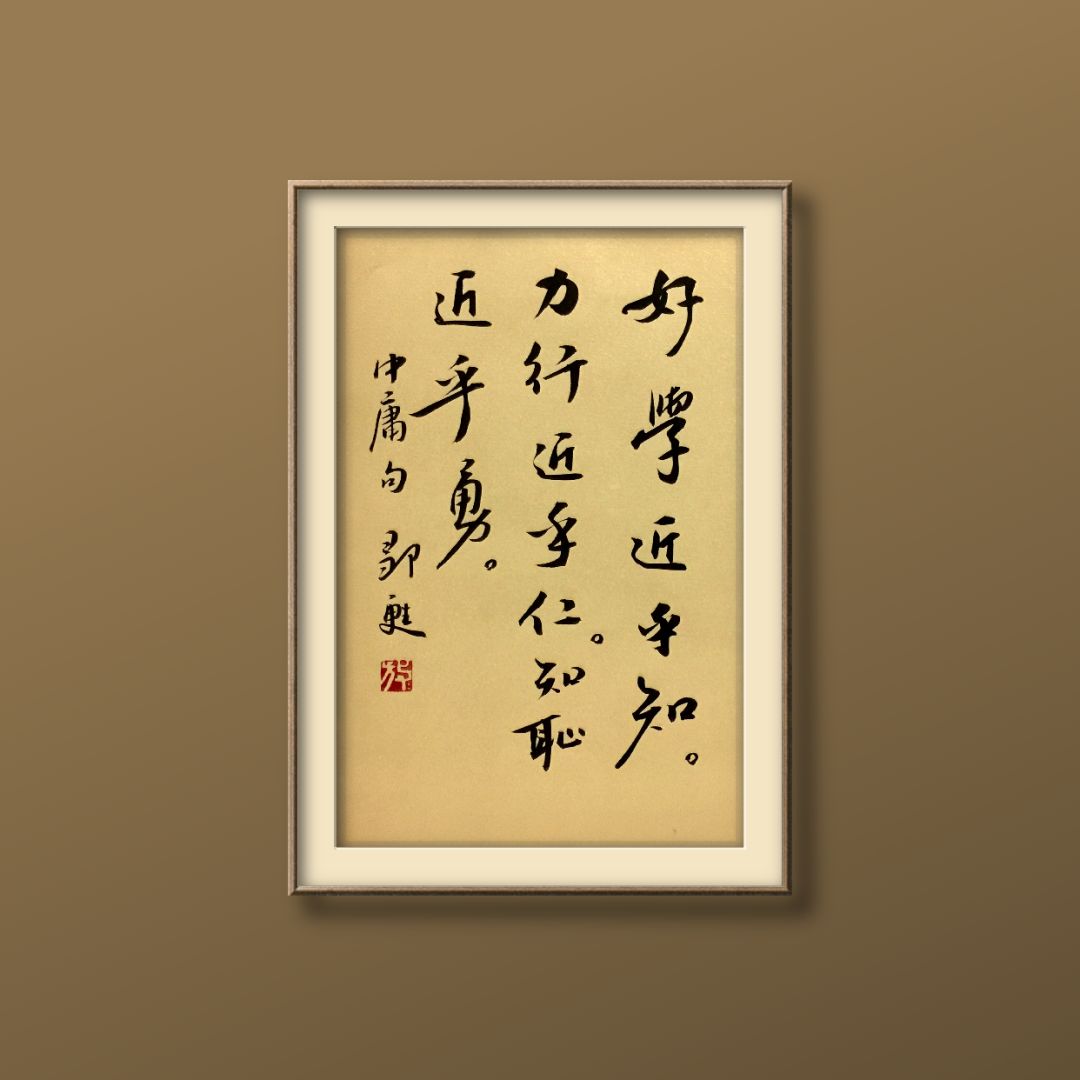 好學近乎知。
力行近乎仁。知恥
近乎勇。
中庸句 鄒甦